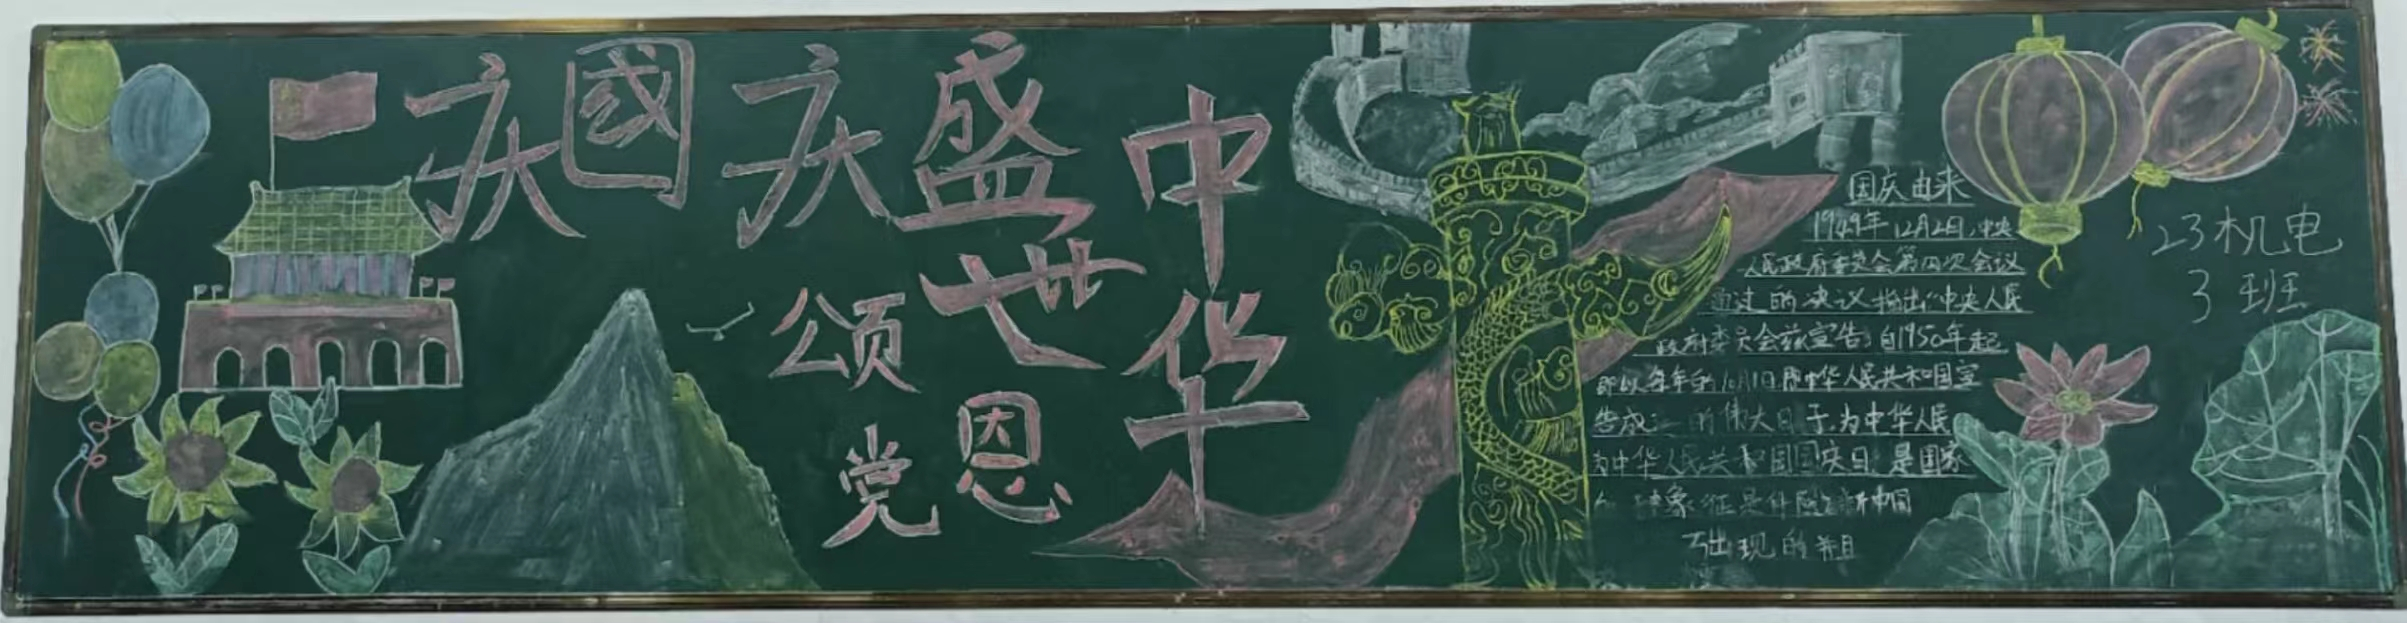 庆國庆
盛世中华
颂党恩
国庆由来
1949年12月2日，中央
人民政府委员会第四次会议
通过的决议指出"中央人民
政府委员会兹宣告：自1950年起
即以每年的10月1日 中华人民共和国宣
告成立的伟大日子，为中华人民
为中华人民共和国国庆日 是国家
象征是伴随 新中国
出现的 且
23机电
3班